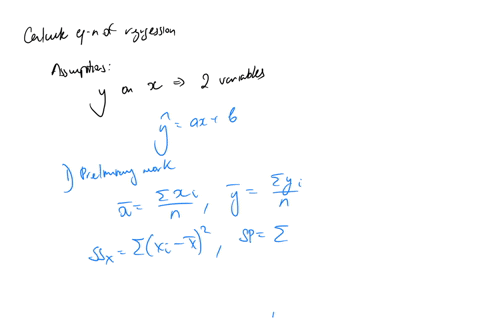 Calculate eq-n of regression
Assumptions:
y on x ⇒ 2 variables
ŷ = ax + b
1) Preliminary work
a̅ = Σxi / n , y̅ = Σyi / n
SSx = Σ(xi - x̅)² , SP = Σ